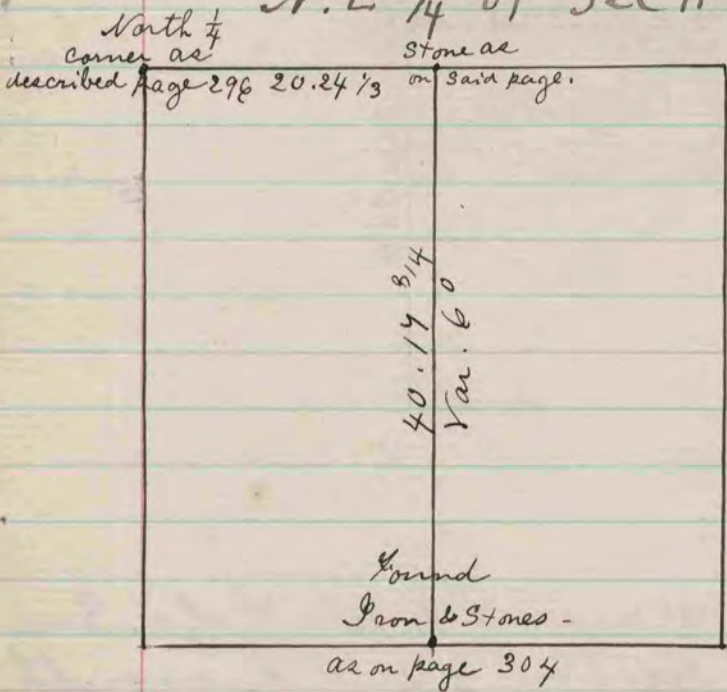 N. E 1/4 of Sec
North 1/4
corner as
described page 296 20.24 1/3
Stone as
on said page.
40.14 3/4
Var. 6°
Found
Iron & Stones -
as on page 304